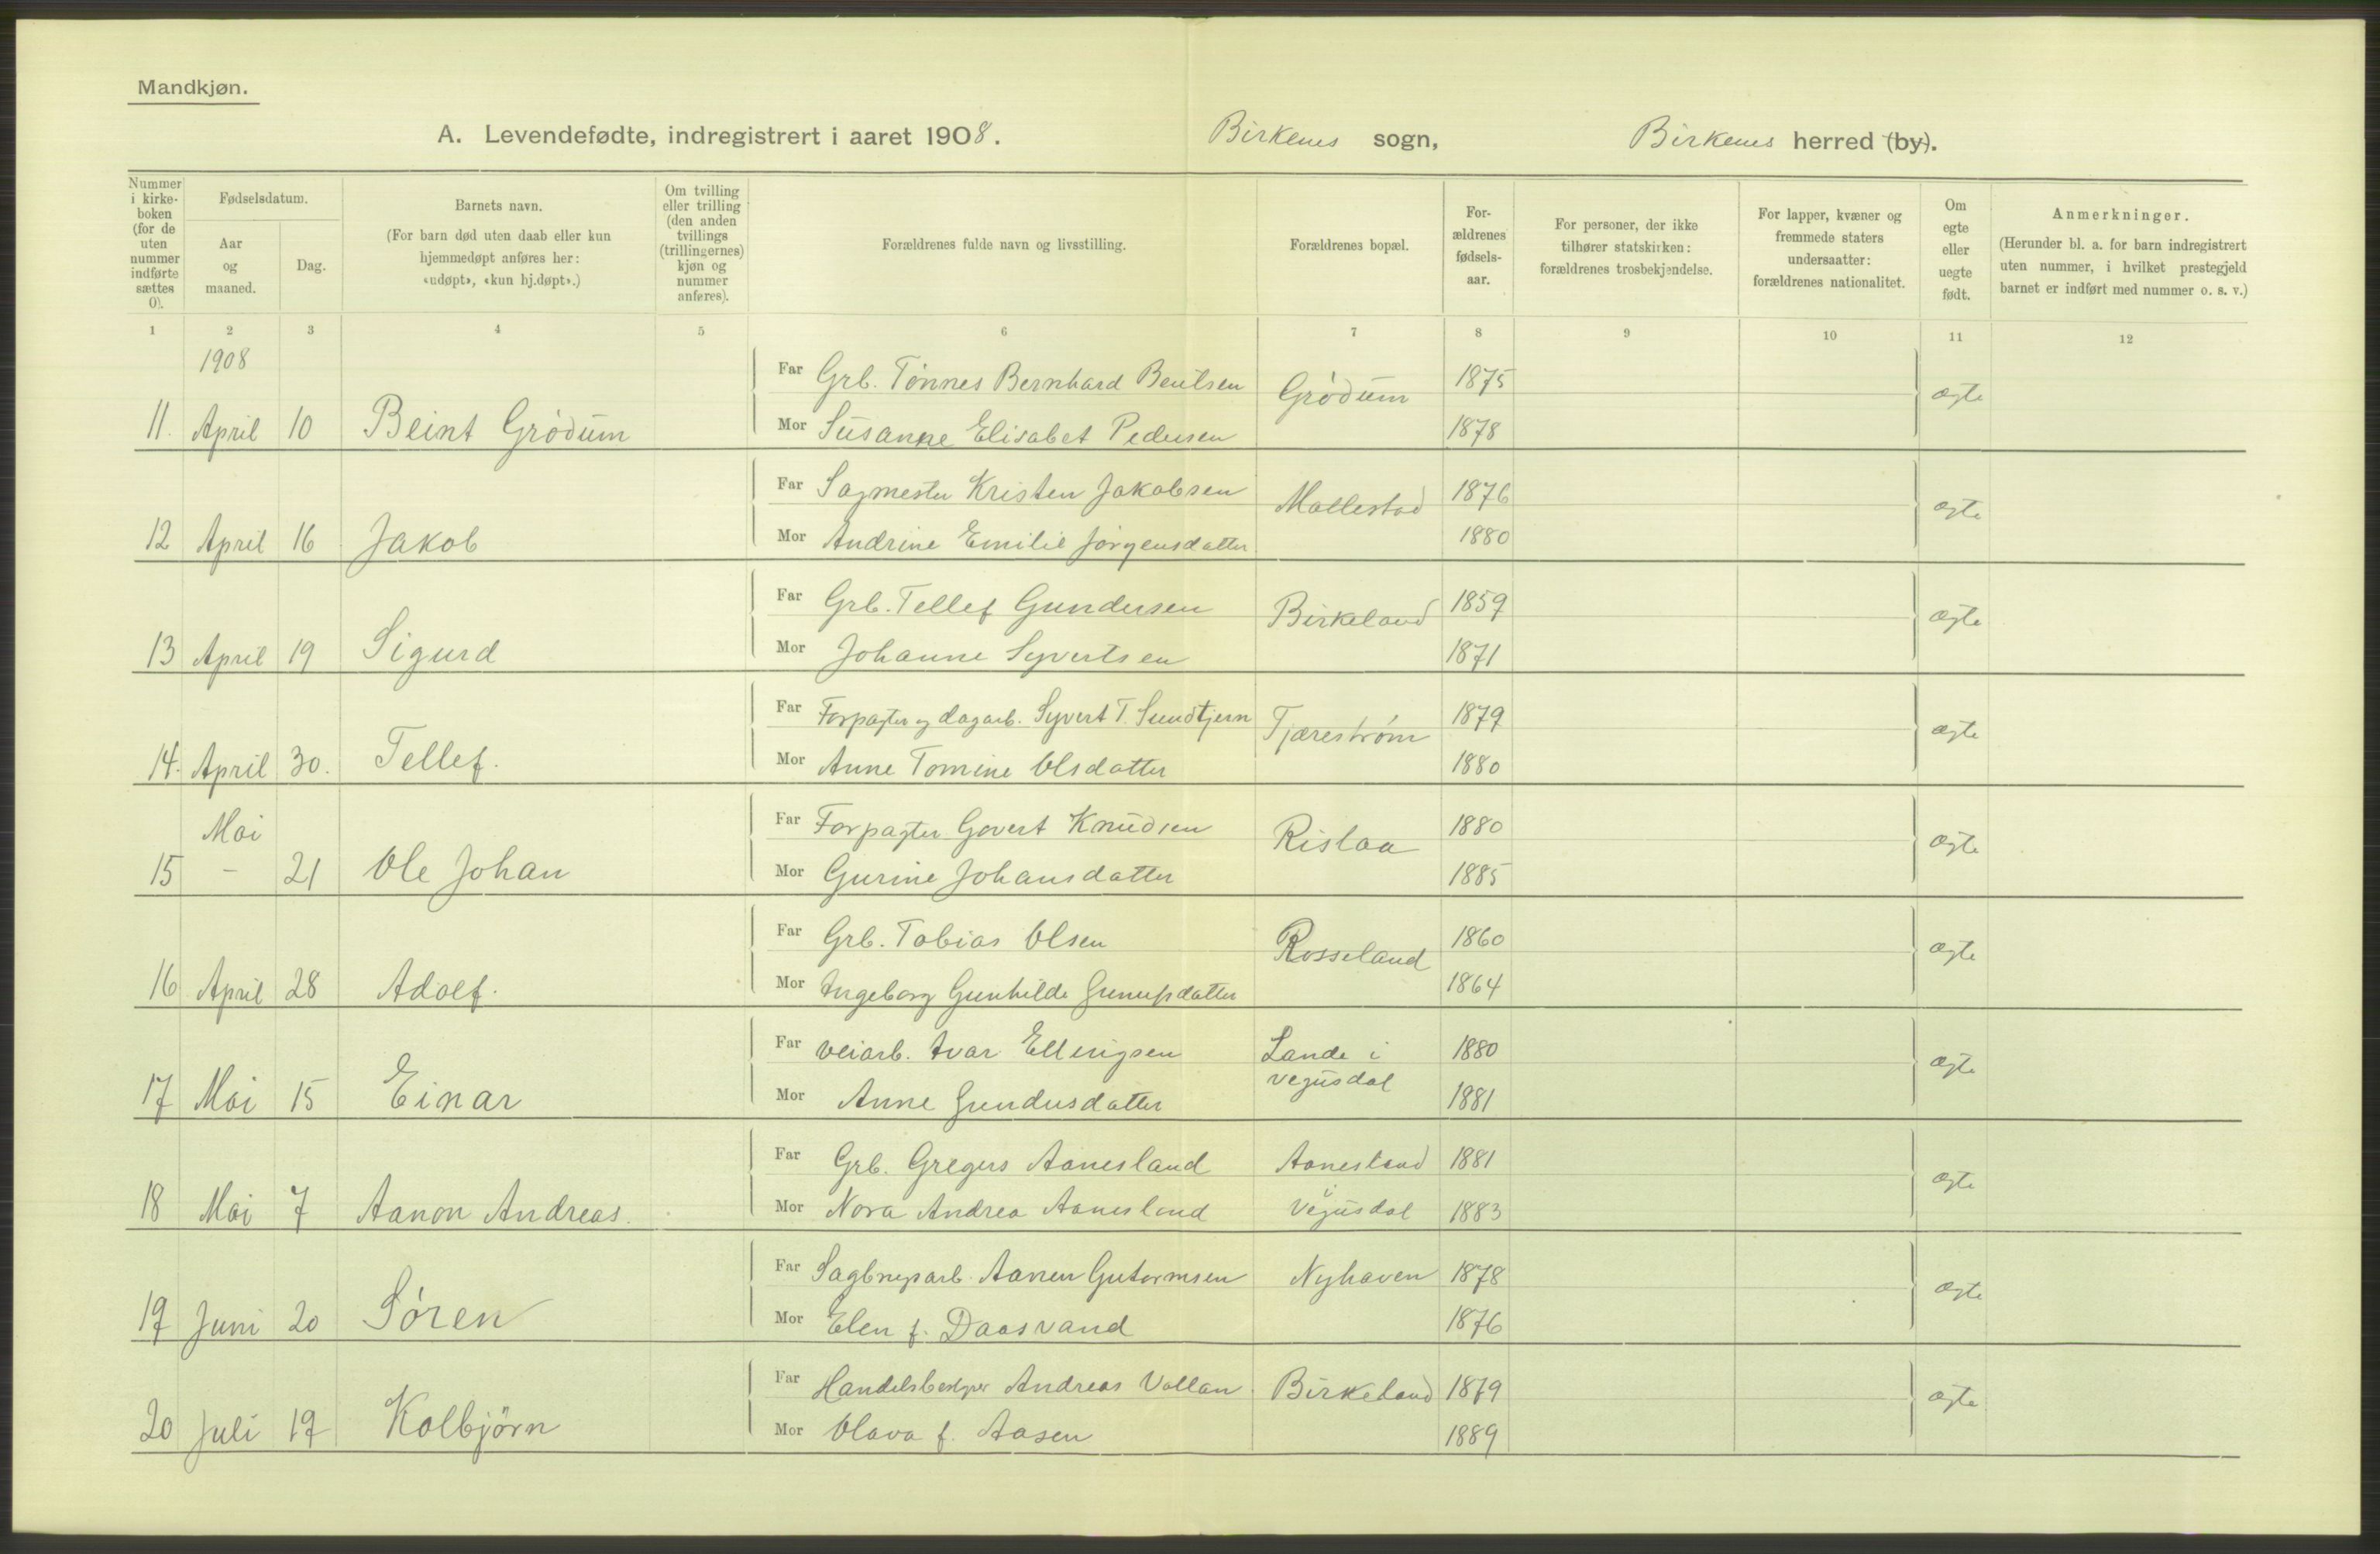 Mandkjøn.
A. Levendefødte, indregistrert i aaret 1908. Birkenes sogn, Birkenes herred (by).
Nummer i kirke-boken (for de uten nummer indførte sættes 0).
Fødselsdatum.
Aar og maaned.
Dag.
Barnets navn.
(For barn død uten daab eller kun hjemmedøpt anføres her: «udøpt», «kun hj.døpt».)
Om tvilling eller trilling (den anden tvillings (trillingernes) kjøn og nummer anføres).
Forældrenes fulde navn og livsstilling.
Forældrenes bopæl.
For-ældrenes fødsels-aar.
For personer, der ikke tilhører statskirken: forældrenes trosbekjendelse.
For lapper, kvæner og fremmede staters undersaatter: forældrenes nationalitet.
Om egte eller uegte født.
Anmerkninger.
(Herunder bl. a. for barn indregistrert uten nummer, i hvilket prestegjeld barnet er indført med nummer o. s. v.)
1 2 3 4 5 6 7 8 9 10 11 12
1908
Far Grb. Tønnes Bernhard Beintsen Grødum 1875 ægte
11. April 10 Beint Grødum Mor Susanne Elisabet Pedersen 1878
Far Sagmester Kristen Jakobsen Mollestad 1876 ægte
12 April 16 Jakob Mor Andrine Emilie Jørgensdatter 1880
Far Grb. Tellef Gundersen Birkeland 1859 ægte
13 April 19 Sigurd Mor Johanne Syvertsen 1871
Far Forpagter og dagarb. Syvert T. Sundtjern Tjærestrøm 1879 ægte
14. April 30. Tellef. Mor Anne Tomine Olsdatter 1880
Mai Far Forpagter Govert Knudsen Rislaa 1880 ægte
15 - 21 Ole Johan Mor Gurine Johansdatter 1885
Far Grb. Tobias Olsen Rosseland 1860 ægte
16 April 28 Adolf. Mor Ingeborg Gunhilde 1864
Far veiarb. Ivar Ellingsen Lande i vegusdal 1880 ægte
17 Mai 15 Einar Mor Anne Gundersdatter 1881
Far Grb. Gregers Aanesland Aanesland i Vegusdal 1881 ægte
18 Mai 7 Aanon Andreas. Mor Nora Andrea Aanesland 1883
Far Sagbrugsarb. Aanen Gutormsen Nyhaven 1878 ægte
19 Juni 20 Søren Mor Elen f. Daasvand 1876
Far Handelsbestyrer Andreas Vollan Birkeland 1879 ægte
20 Juli 19 Kolbjørn Mor Olava f. Aasen 1889